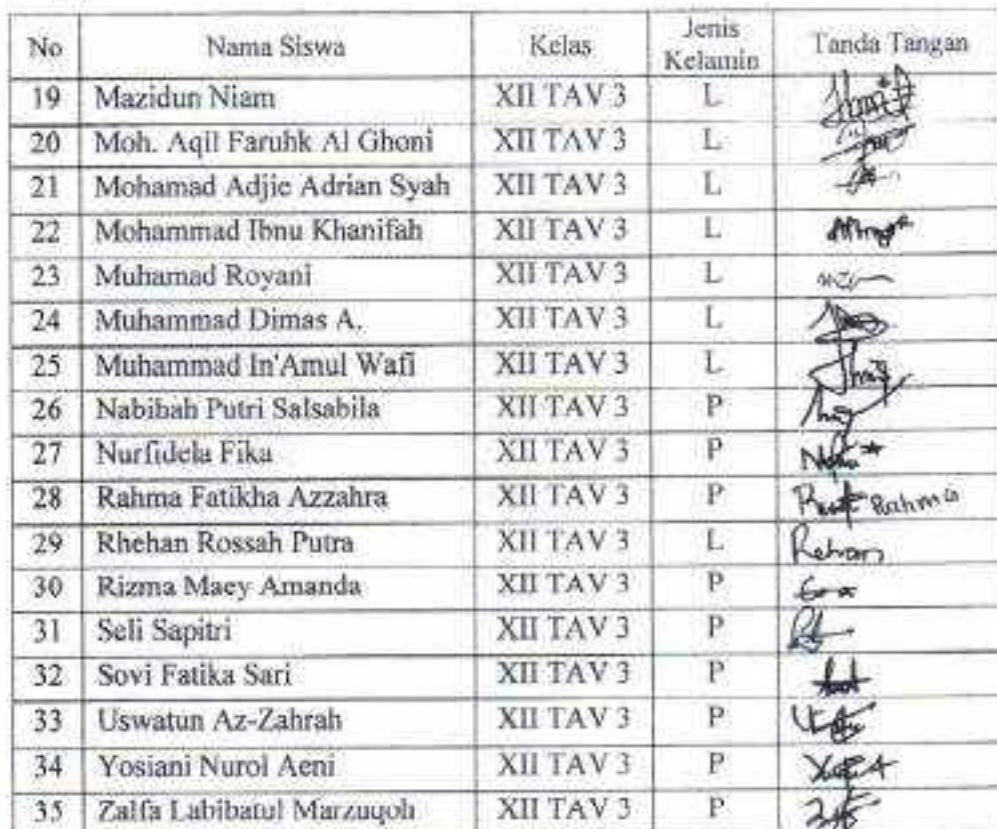 No Nama Siswa Kelas Jenis Kelamin Tanda Tangan
19 Mazidun Niam XII TAV 3 L
20 Moh. Aqil Faruhk Al Ghoni XII TAV 3 L
21 Mohamad Adjie Adrian Syah XII TAV 3 L
22 Mohammad Ibnu Khanifah XII TAV 3 L
23 Muhamad Royani XII TAV 3 L
24 Muhammad Dimas A. XII TAV 3 L
25 Muhammad In'Amul Wafi XII TAV 3 L
26 Nabibah Putri Salsabila XII TAV 3 P
27 Nurfidela Fika XII TAV 3 P
28 Rahma Fatikha Azzahra XII TAV 3 P Rahma
29 Rhehan Rossah Putra XII TAV 3 L Rehan
30 Rizma Maey Amanda XII TAV 3 P
31 Seli Sapitri XII TAV 3 P
32 Sovi Fatika Sari XII TAV 3 P
33 Uswatun Az-Zahrah XII TAV 3 P
34 Yosiani Nurol Aeni XII TAV 3 P
35 Zalfa Labibatul Marzuqoh XII TAV 3 P